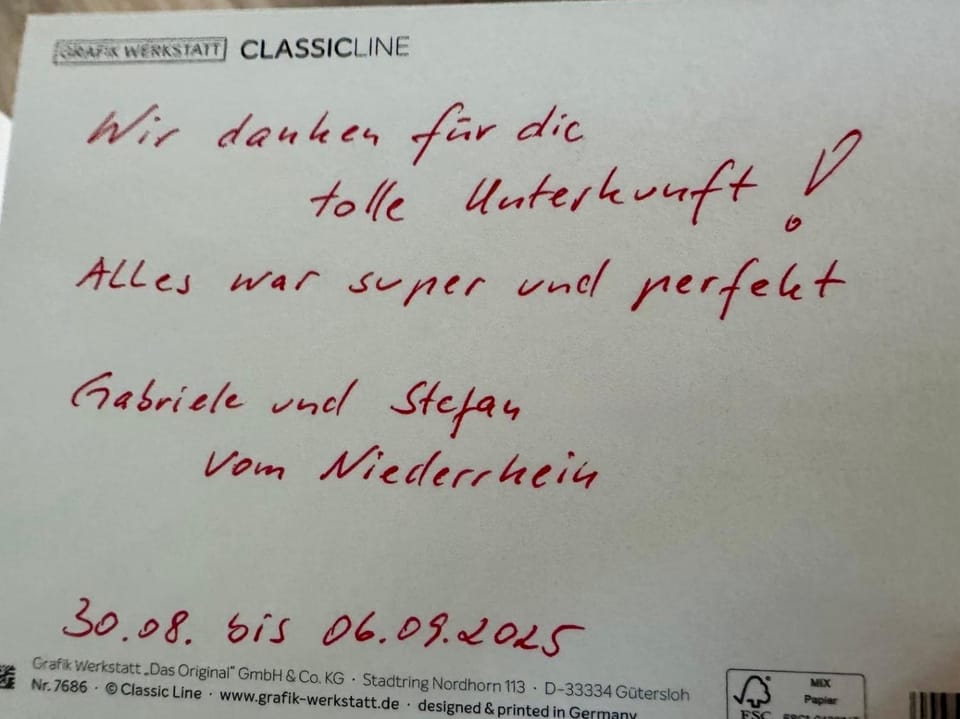 GRAFIK WERKSTATT CLASSICLINE
Wir danken für die
tolle Unterkunft!
Alles war super und perfekt
Gabriele und Stefan
vom Niederrhein
30.08. bis 06.09.2025
Grafik Werkstatt „Das Original“ GmbH & Co. KG · Stadtring Nordhorn 113 · D-33334 Gütersloh
Nr. 7686 · © Classic Line · www.grafik-werkstatt.de · designed & printed in Germany
MIX
Papier
FSC